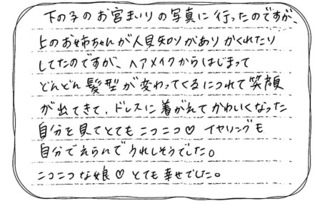 下の子のお宮まいりの写真に行ったのですが、
上のお姉ちゃんが人見知りがありかくれたり
してたのですが、ヘアメイクからはじまって
どんどん髪型が変わってくるにつれて笑顔
が出てきて、ドレスに着がえてかわいくなった
自分を見てとてもニコニコ♡ イヤリングも
自分でえらんでうれしそうでした。
ニコニコな娘♡とても幸せでした。